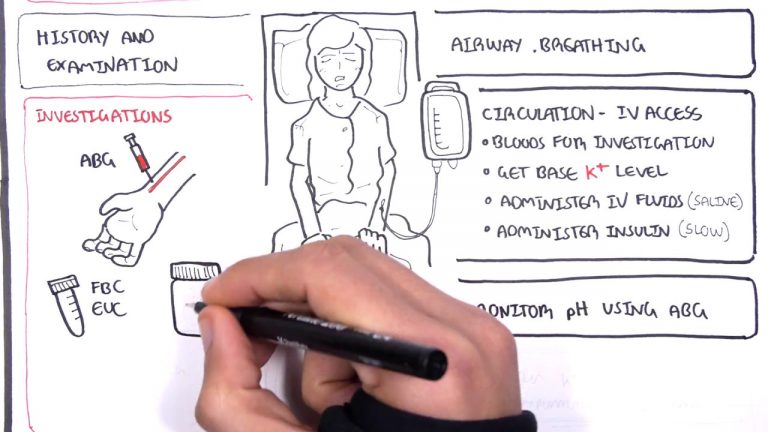 HISTORY AND
EXAMINATION
INVESTIGATIONS
ABG
FBC
EUC
AIRWAY . BREATHING
CIRCULATION - IV ACCESS
• BLOODS FOR INVESTIGATION
• GET BASE K+ LEVEL
• ADMINISTER IV FLUIDS (SALINE)
• ADMINISTER INSULIN (SLOW)
ONITOR pH USING ABG